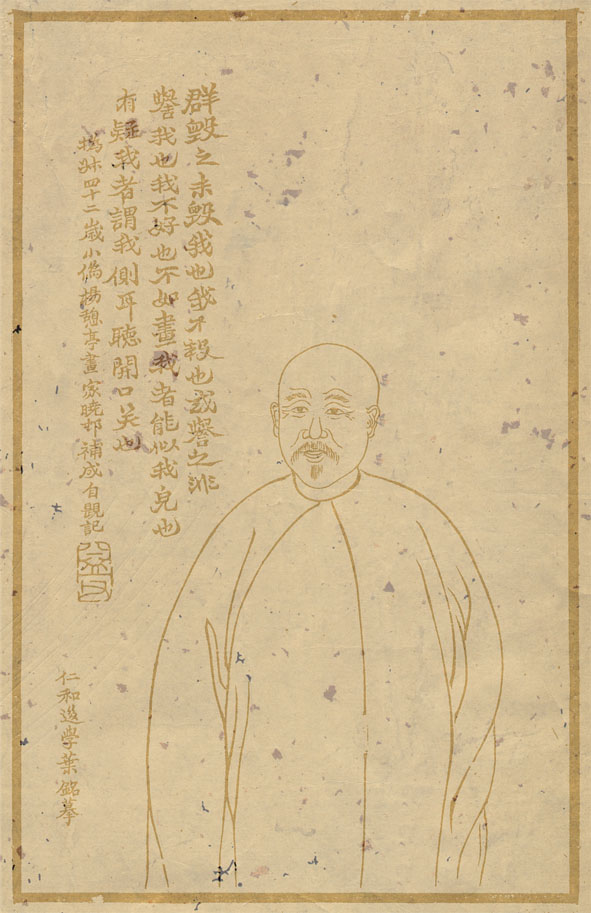 群毀之未毀我也我不報也或譽之非
譽我也我不好也不如畫我者能似我皃也
有疑我者謂我側耳聽開口笑也
撝叔四十二歲小像楊憩亭畫家曉邨補成自題記
仁和後學葉銘摹